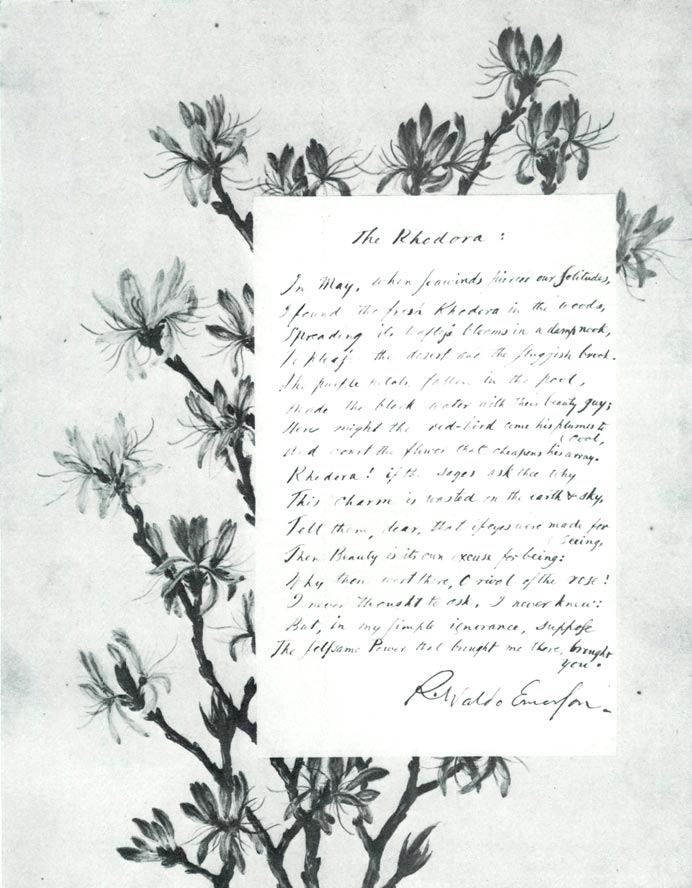 The Rhodora:
In May, when seawinds pierced our solitudes,
I found the fresh Rhodora in the woods,
Spreading its leafless blooms in a damp nook,
To please the desert and the sluggish brook.
The purple petals fallen in the pool,
made the black water with their beauty gay;
Here might the red-bird come his plumes to
cool,
And court the flower that cheapens his array.
Rhodora! if the sages ask thee why
This charm is wasted on the earth & sky,
Tell them, dear, that if eyes were made for
seeing,
Then Beauty is its own excuse for being:
Why thou wert there, O rival of the rose!
I never thought to ask, I never knew:
But, in my simple ignorance, suppose
The selfsame Power that brought me there, brought
you.
R. Waldo Emerson.